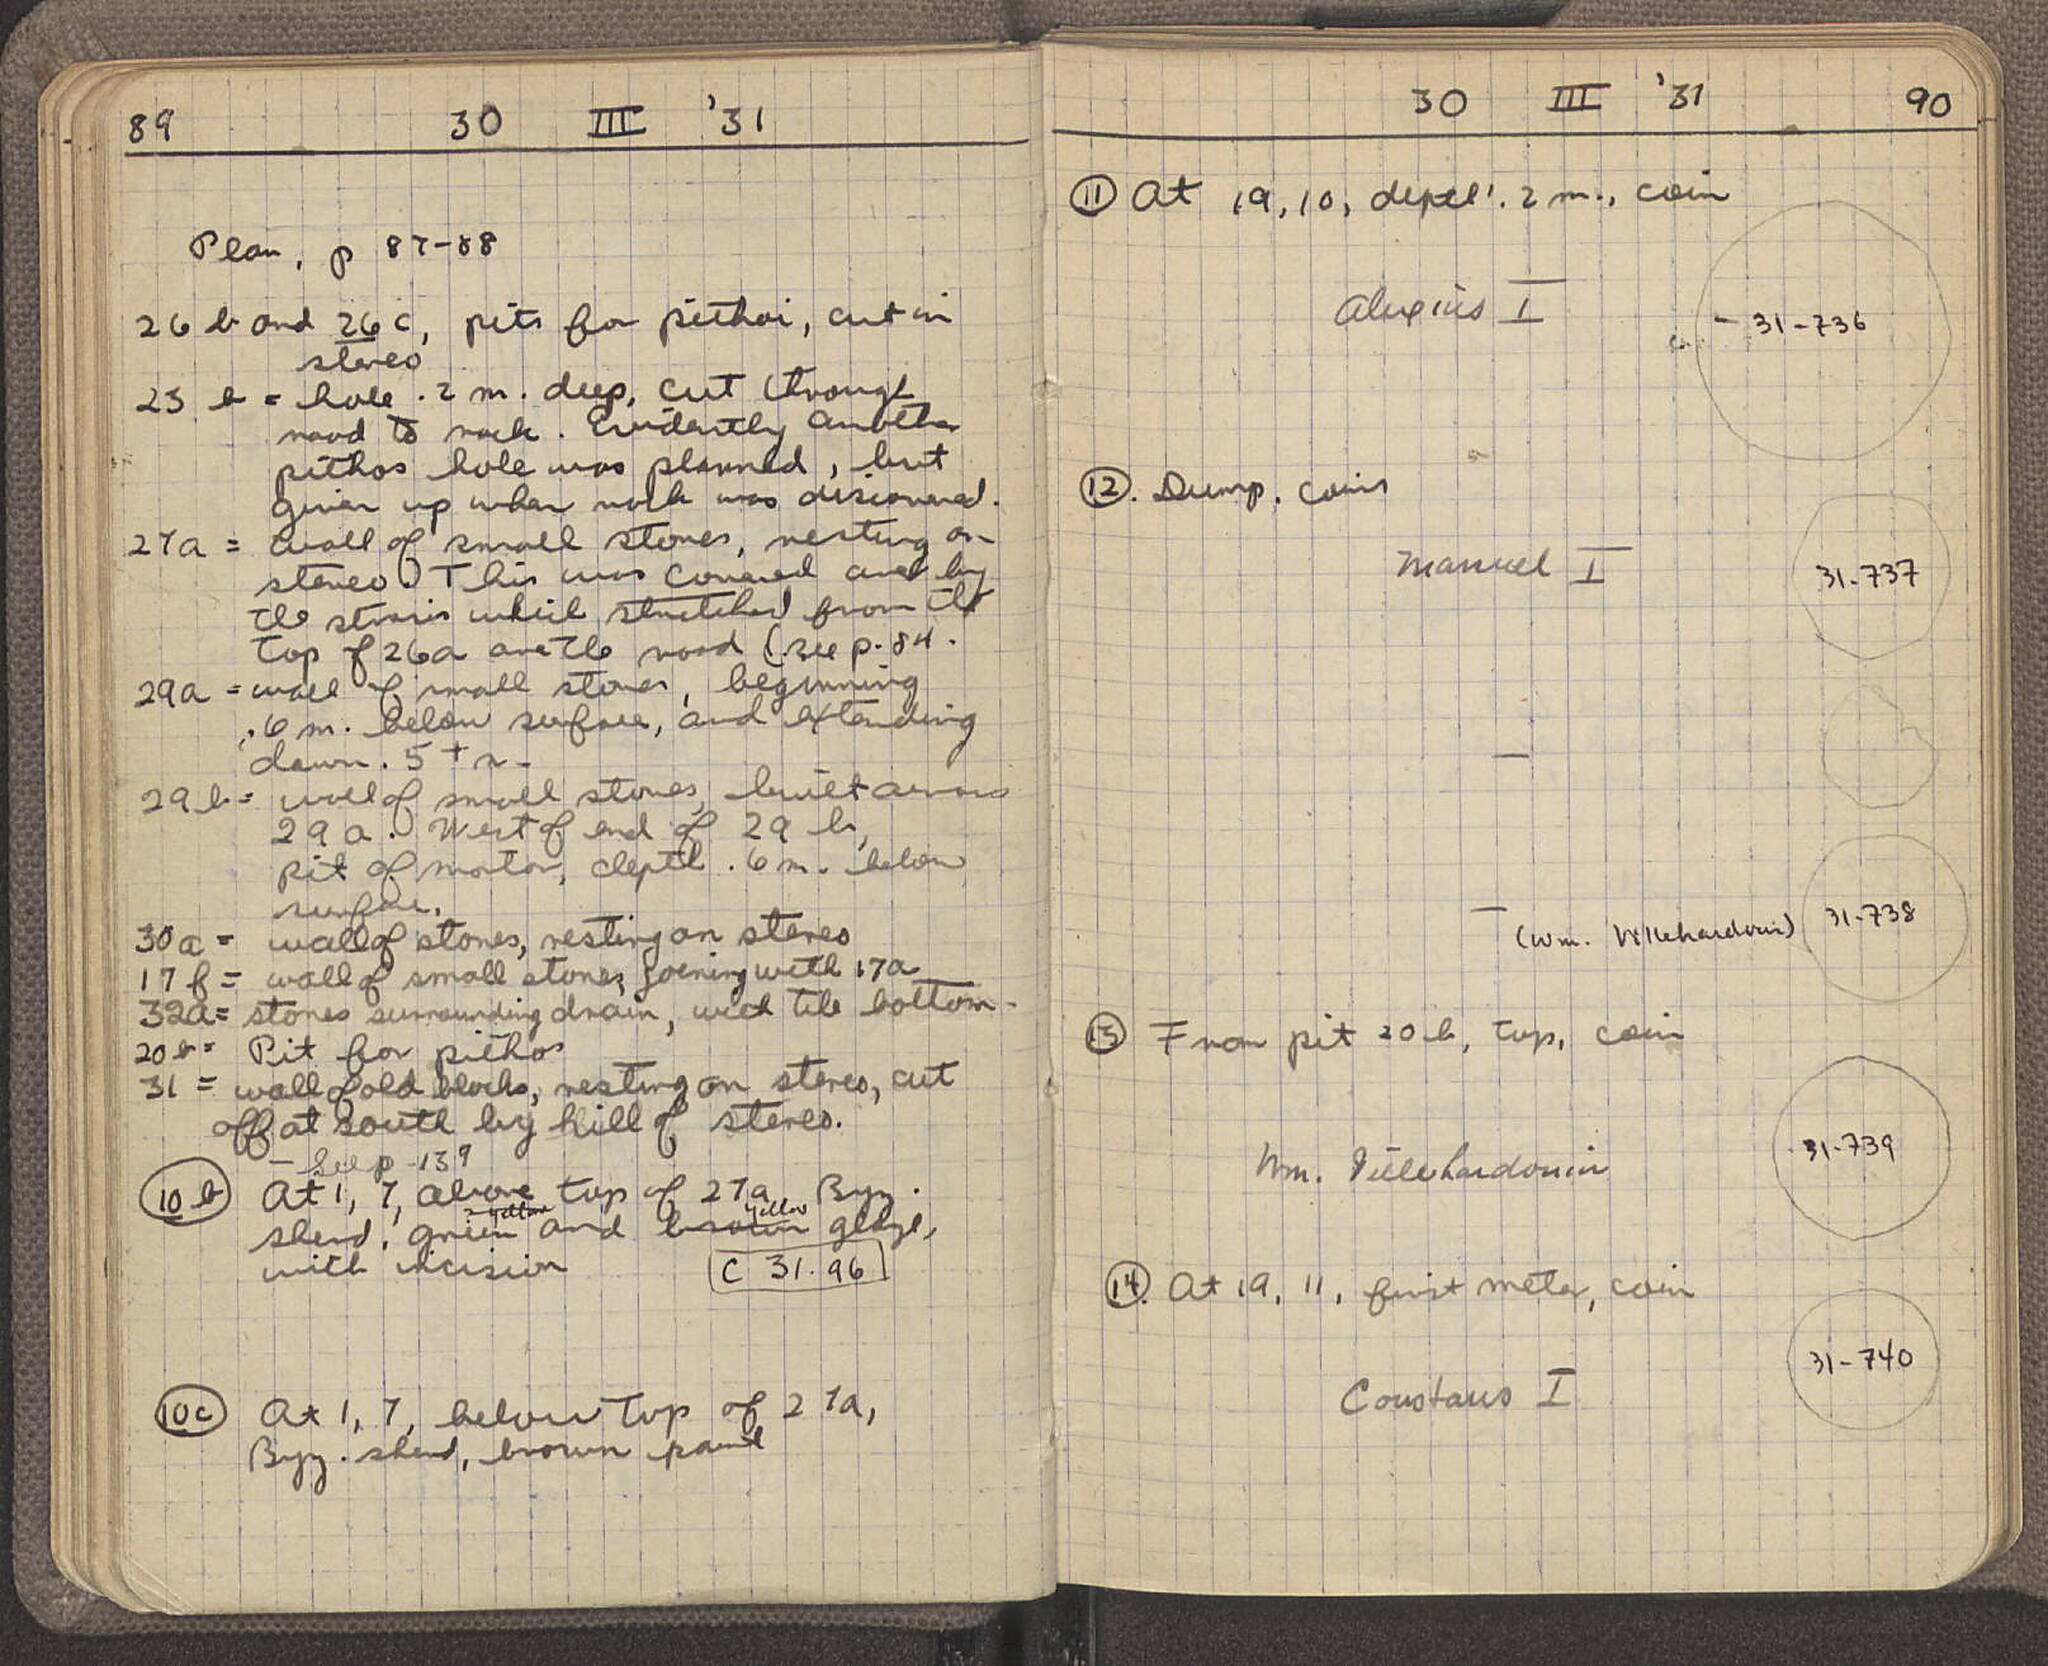 89 30 III '31
Plan, p 87-88
26 b and 26 c, pits for pithoi, cut in
stereo
23 b = hole .2 m. deep, cut through
road to rock. Evidently another
pithos hole was planned, but
given up when rock was discovered.
27a = wall of small stones, resting on
stereo. This was covered over by
the stairs which stretched from the
top of 26a over the road (see p. 84.
29a = wall of small stones, beginning
.6 m. below surface, and extending
down .5 + m.
29 b = wall of small stones, built across
29 a. West of end of 29 b,
pit of mortar, depth .6 m. below
surface.
30a = wall of stones, resting on stereo
17 f = wall of small stones, joining with 17a
32a = stones surrounding drain, with tile bottom.
20 b = Pit for pithos
31 = wall of old blocks, resting on stereo, cut
off at south by hill of stereo.
- See p 139
10 b At 1, 7, above top of 27a Byz.
yellow yellow
sherd, green and brown glaze,
with incision C 31.96
10c At 1, 7, below top of 27a,
Byz. sherd, brown paint
30 III '31 90
11 At 19, 10, depth .2 m., coin
Alexius I - 31-736
12. Dump. coins
Manuel I 31-737
—
— (Wm. Villehardouin) 31-738
13 From pit 20 b, top, coin
Wm. Villehardouin 31-739
14. At 19, 11, first meter, coin
Constans I 31-740